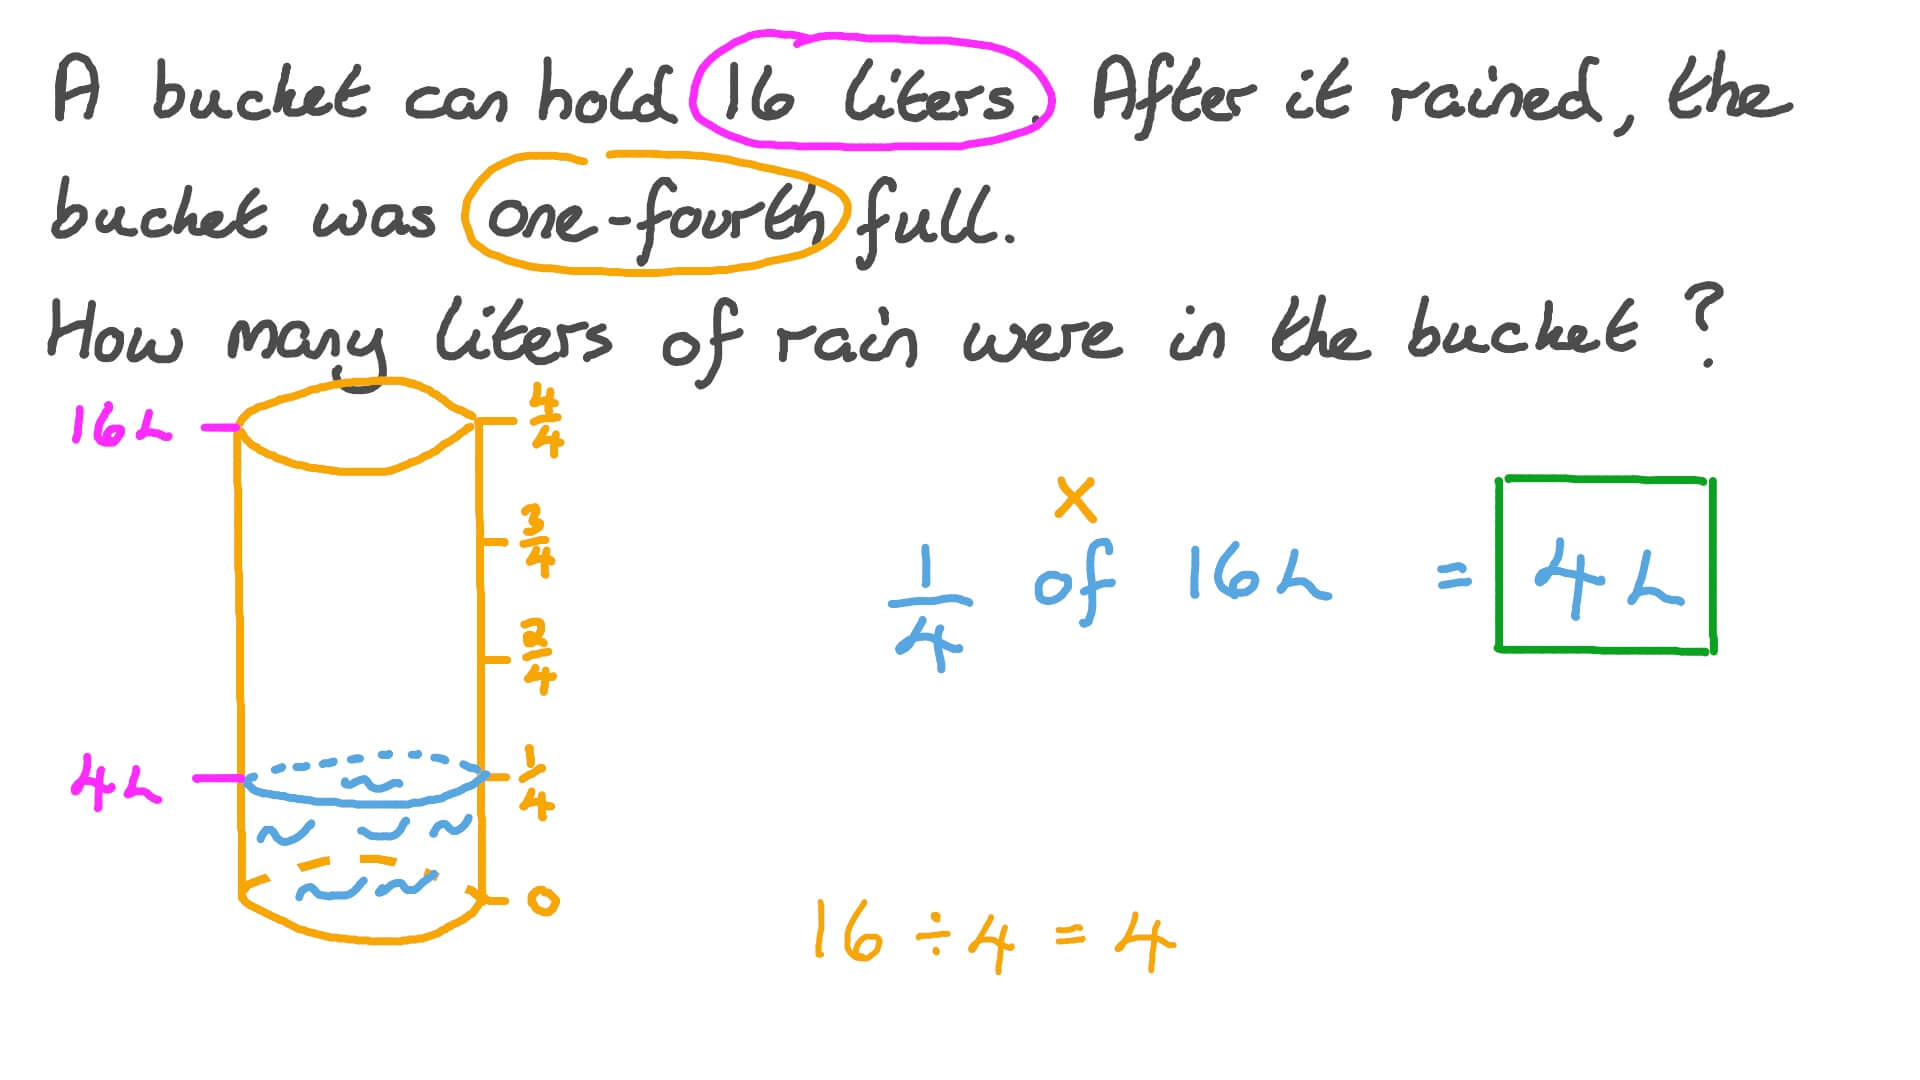 A bucket can hold 16 liters. After it rained, the
bucket was one-fourth full.
How many liters of rain were in the bucket?
16L
4/4
3/4
2/4
4L
1/4
0
×
1/4 of 16L = 4L
16 ÷ 4 = 4